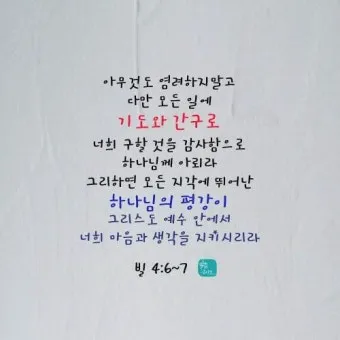 아무것도 염려하지말고
다만 모든 일에
기도와 간구로
너희 구할 것을 감사함으로
하나님께 아뢰라
그리하면 모든 지각에 뛰어난
하나님의 평강이
그리스도 예수 안에서
너희 마음과 생각을 지키시리라
빌 4:6~7